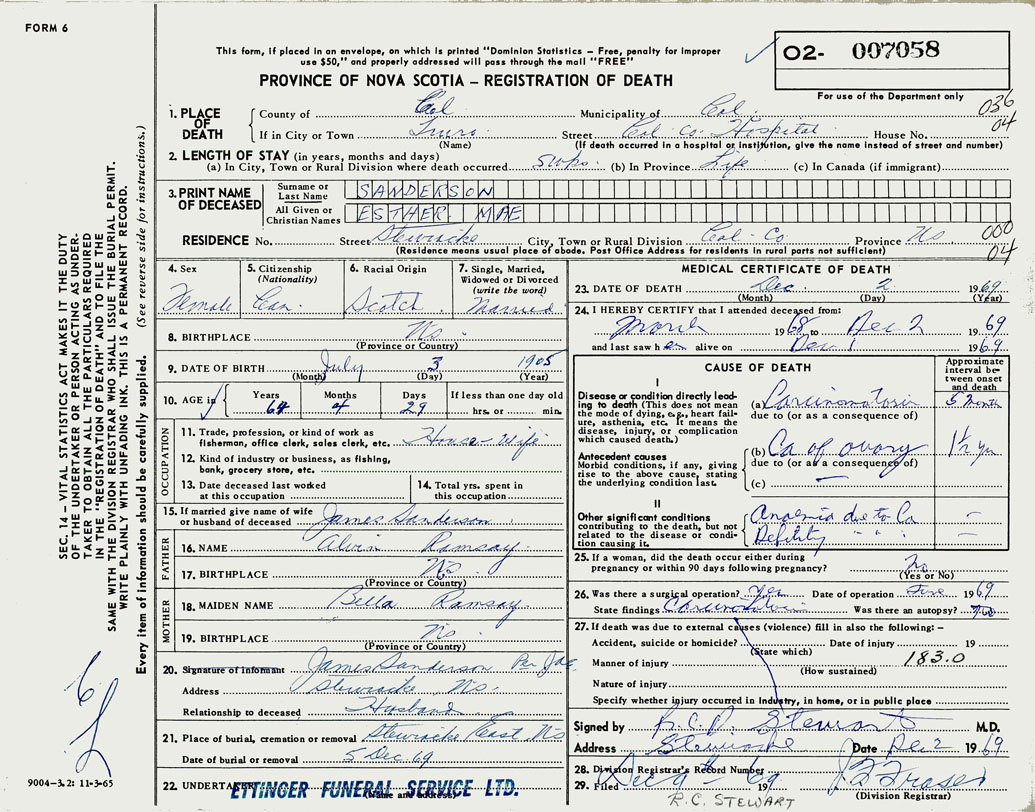 FORM 6
This form, if placed in an envelope, on which is printed "Dominion Statistics – Free, penalty for improper
use $50," and properly addressed will pass through the mail "FREE"
PROVINCE OF NOVA SCOTIA – REGISTRATION OF DEATH
02- 007058
For use of the Department only
036
04
1. PLACE OF DEATH
County of Col Municipality of Col.
If in City or Town Truro Street Col. Co. Hospital House No.
(Name) (If death occurred in a hospital or institution, give the name instead of street and number)
2. LENGTH OF STAY (in years, months and days)
(a) In City, Town or Rural Division where death occurred 5 wks. (b) In Province Life (c) In Canada (if immigrant)
3. PRINT NAME OF DECEASED
Surname or Last Name SANDERSON
All Given or Christian Names ESTHER MAE
RESIDENCE No. Street Stewiacke City, Town or Rural Division Col. Co. Province NS
000
04
(Residence means usual place of abode. Post Office Address for residents in rural parts not sufficient)
4. Sex
Female
5. Citizenship
(Nationality)
Can.
6. Racial Origin
Scotch
7. Single, Married, Widowed or Divorced
(write the word)
Married
8. BIRTHPLACE N.S.
(Province or Country)
9. DATE OF BIRTH July 3 1905
(Month) (Day) (Year)
10. AGE in Years Months Days If less than one day old
64 4 29 hrs. or min.
OCCUPATION
11. Trade, profession, or kind of work as
fishermon, office clerk, sales clerk, etc. House-wife
12. Kind of industry or business, as fishing,
bank, grocery store, etc.
13. Date deceased last worked
at this occupation
14. Total yrs. spent in
this occupation
15. If married give name of wife
or husband of deceased James Sanderson
FATHER
16. NAME Alvin Ramsay
17. BIRTHPLACE N.S.
(Province or Country)
MOTHER
18. MAIDEN NAME Bella Ramsay
19. BIRTHPLACE N.S.
(Province or Country)
20. Signature of informant James Sanderson Per
Address Stewiacke, N.S.
Relationship to deceased Husband
21. Place of burial, cremation or removal Stewiacke East NS
Date of burial or removal 5 Dec. 69
22. UNDERTAKER ETTINGER FUNERAL SERVICE LTD.
(Name and address)
MEDICAL CERTIFICATE OF DEATH
23. DATE OF DEATH Dec. 2 1969
(Month) (Day) (Year)
24. I HEREBY CERTIFY that I attended deceased from:
March 1968 to Dec 2 1969
and last saw h er alive on Dec 1 1969
CAUSE OF DEATH
Approximate interval between onset and death
I
Disease or condition directly leading to death (This does not mean
the mode of dying, e.g., heart failure, asthenia, etc. It means the
disease, injury, or complication
which caused death.)
(a) Carcinomatosis 5 month
due to (or as a consequence of)
Antecedent causes
Morbid conditions, if any, giving
rise to the above cause, stating
the underlying condition last.
(b) Ca of ovary 1½ yr
due to (or as a consequence of)
(c) –
II
Other significant conditions
contributing to the death, but not
related to the disease or condition causing it.
Anaemia due to Ca –
Debility " " –
25. If a woman, did the death occur either during
pregnancy or within 90 days following pregnancy? No
(Yes or No)
26. Was there a surgical operation? Yes Date of operation June 1969
State findings Carcinomatosis Was there an autopsy? no
27. If death was due to external causes (violence) fill in also the following: –
Accident, suicide or homicide? Date of injury 19
(State which)
Manner of injury 183.0
(How sustained)
Nature of injury
Specify whether injury occurred in Industry, in home, or in public place
Signed by R.C.D. Stewart M.D.
Address Stewiacke Date Dec 2 1969
28. Division Registrar's Record Number
29. Filed Dec 9 1969 Fraser
(Division Registrar)
R.C. STEWART
SEC. 14 – VITAL STATISTICS ACT MAKES IT THE DUTY
OF THE UNDERTAKER OR PERSON ACTING AS UNDER-
TAKER TO OBTAIN ALL THE PARTICULARS REQUIRED
IN THE "REGISTRATION OF DEATH" AND TO FILE THE
SAME WITH THE DIVISION REGISTRAR WHO SHALL ISSUE THE BURIAL PERMIT.
WRITE PLAINLY WITH UNFADING INK. THIS IS A PERMANENT RECORD.
Every item of information should be carefully supplied. (See reverse side for instructions.)
9004–3.2: 11-3-65